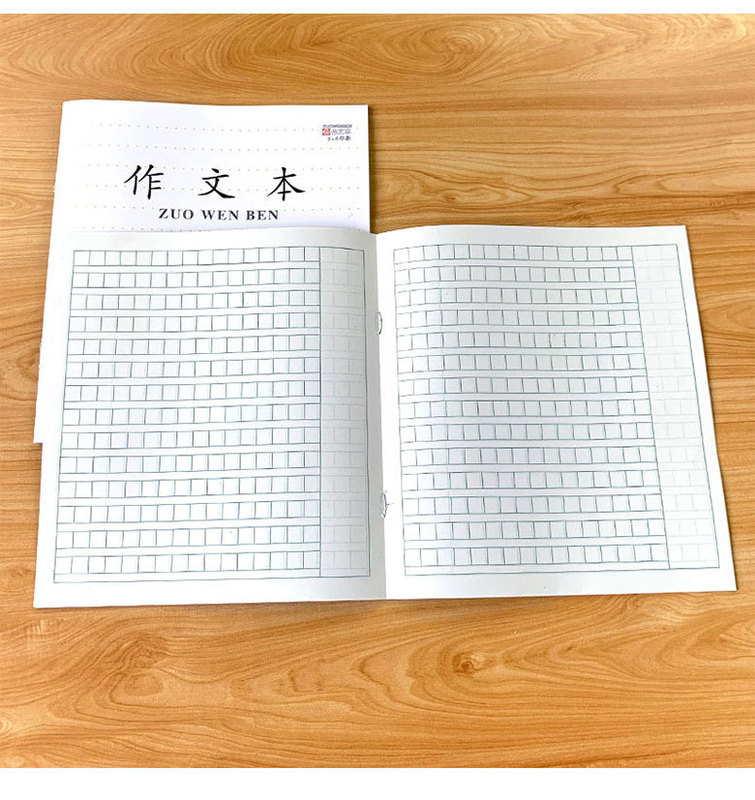 作文本
ZUO WEN BEN